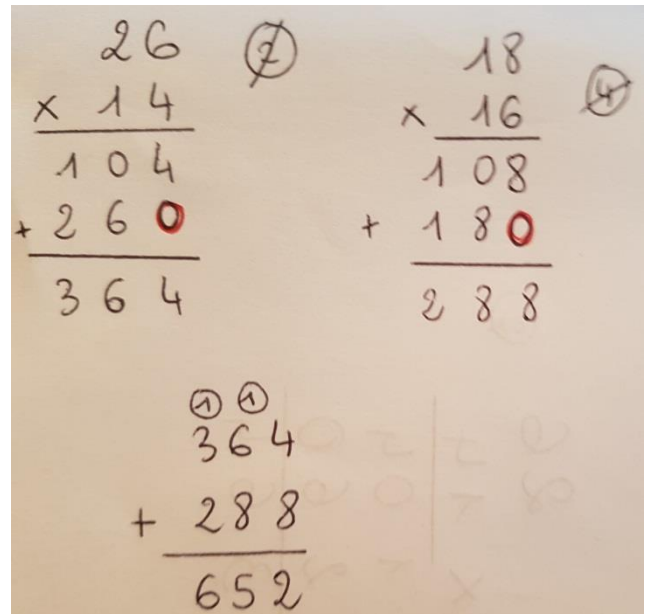 26 2
x 14
104
+ 260
364
18
x 16 4
108
+ 180
288
1 1
364
+ 288
652